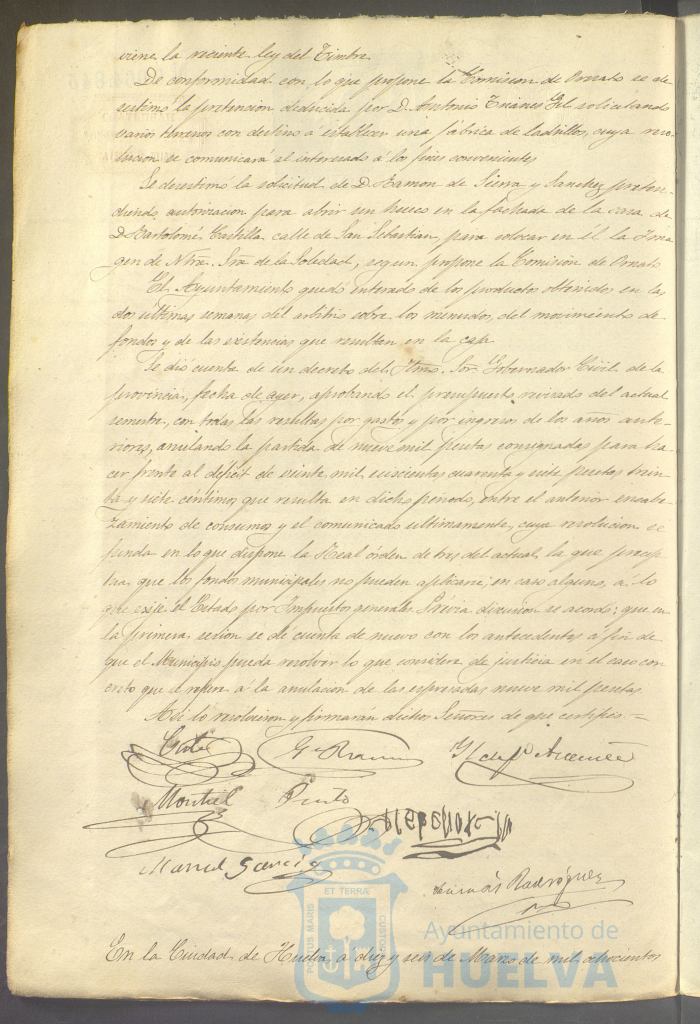 viene la reciente ley del Timbre.
De conformidad con lo que propone la Comision de Ornato se de-
sestimó la pretension deducida por D. Antonio solicitando
varios terrenos con destino á establecer una fábrica de ladrillos, cuya reso-
lucion se comunicará al interesado á los fines convenientes.
Se desestimó la solicitud de D. Ramon de Sierra y Sanchez, preten-
diendo autorizacion para abrir un hueco en la fachada de la casa de
D. Bartolomé Castilla calle de San Sebastian, para colocar en él la Ima-
gen de Ntra. Sra. de la Soledad, segun propone la Comision de Ornato.
El Ayuntamiento quedó enterado de los productos obtenidos en las
dos ultimas semanas del arbitrio sobre los menudos, del movimiento de
fondos y de las existencias que resultan en la caja.
Se dió cuenta de un decreto del Iltmo. Sor. Gobernador Civil de la
provincia, fecha de ayer, aprobando el presupuesto revisado del actual
semestre, con todas las resultas por gastos y por ingresos de los años ante-
riores, anulando la partida de nueve mil pesetas consignadas para ha-
cer frente al déficit de veinte mil seiscientas cuarenta y siete pesetas trein-
ta y siete céntimos que resulta en dicho periodo, entre el anterior encabe-
zamiento de consumos y el comunicado ultimamente, cuya resolucion se
funda en lo que dispone la Real órden de tres del actual, la que precep-
tua que los fondos municipales no pueden aplicarse, en caso alguno, á lo
que exije el Estado por Impuestos generales. Prévia discusion se acordó: que en
la primera sesion se dé cuenta de nuevo con los antecedentes á fin de
que el Municipio pueda resolver lo que considere de justicia en el caso con-
creto que se refiere á la anulacion de las espresadas nueve mil pesetas.
Asi lo resolvieron y firmarán dichos Señores de que certifico.=
Montiel Pinto
Manuel Garcia
Rodríguez
PORTUS MARIS ET TERRÆ CUSTODIA
Ayuntamiento de
HUELVA
En la Ciudad de Huelva á diez y seis de Marzo de mil ochocientos